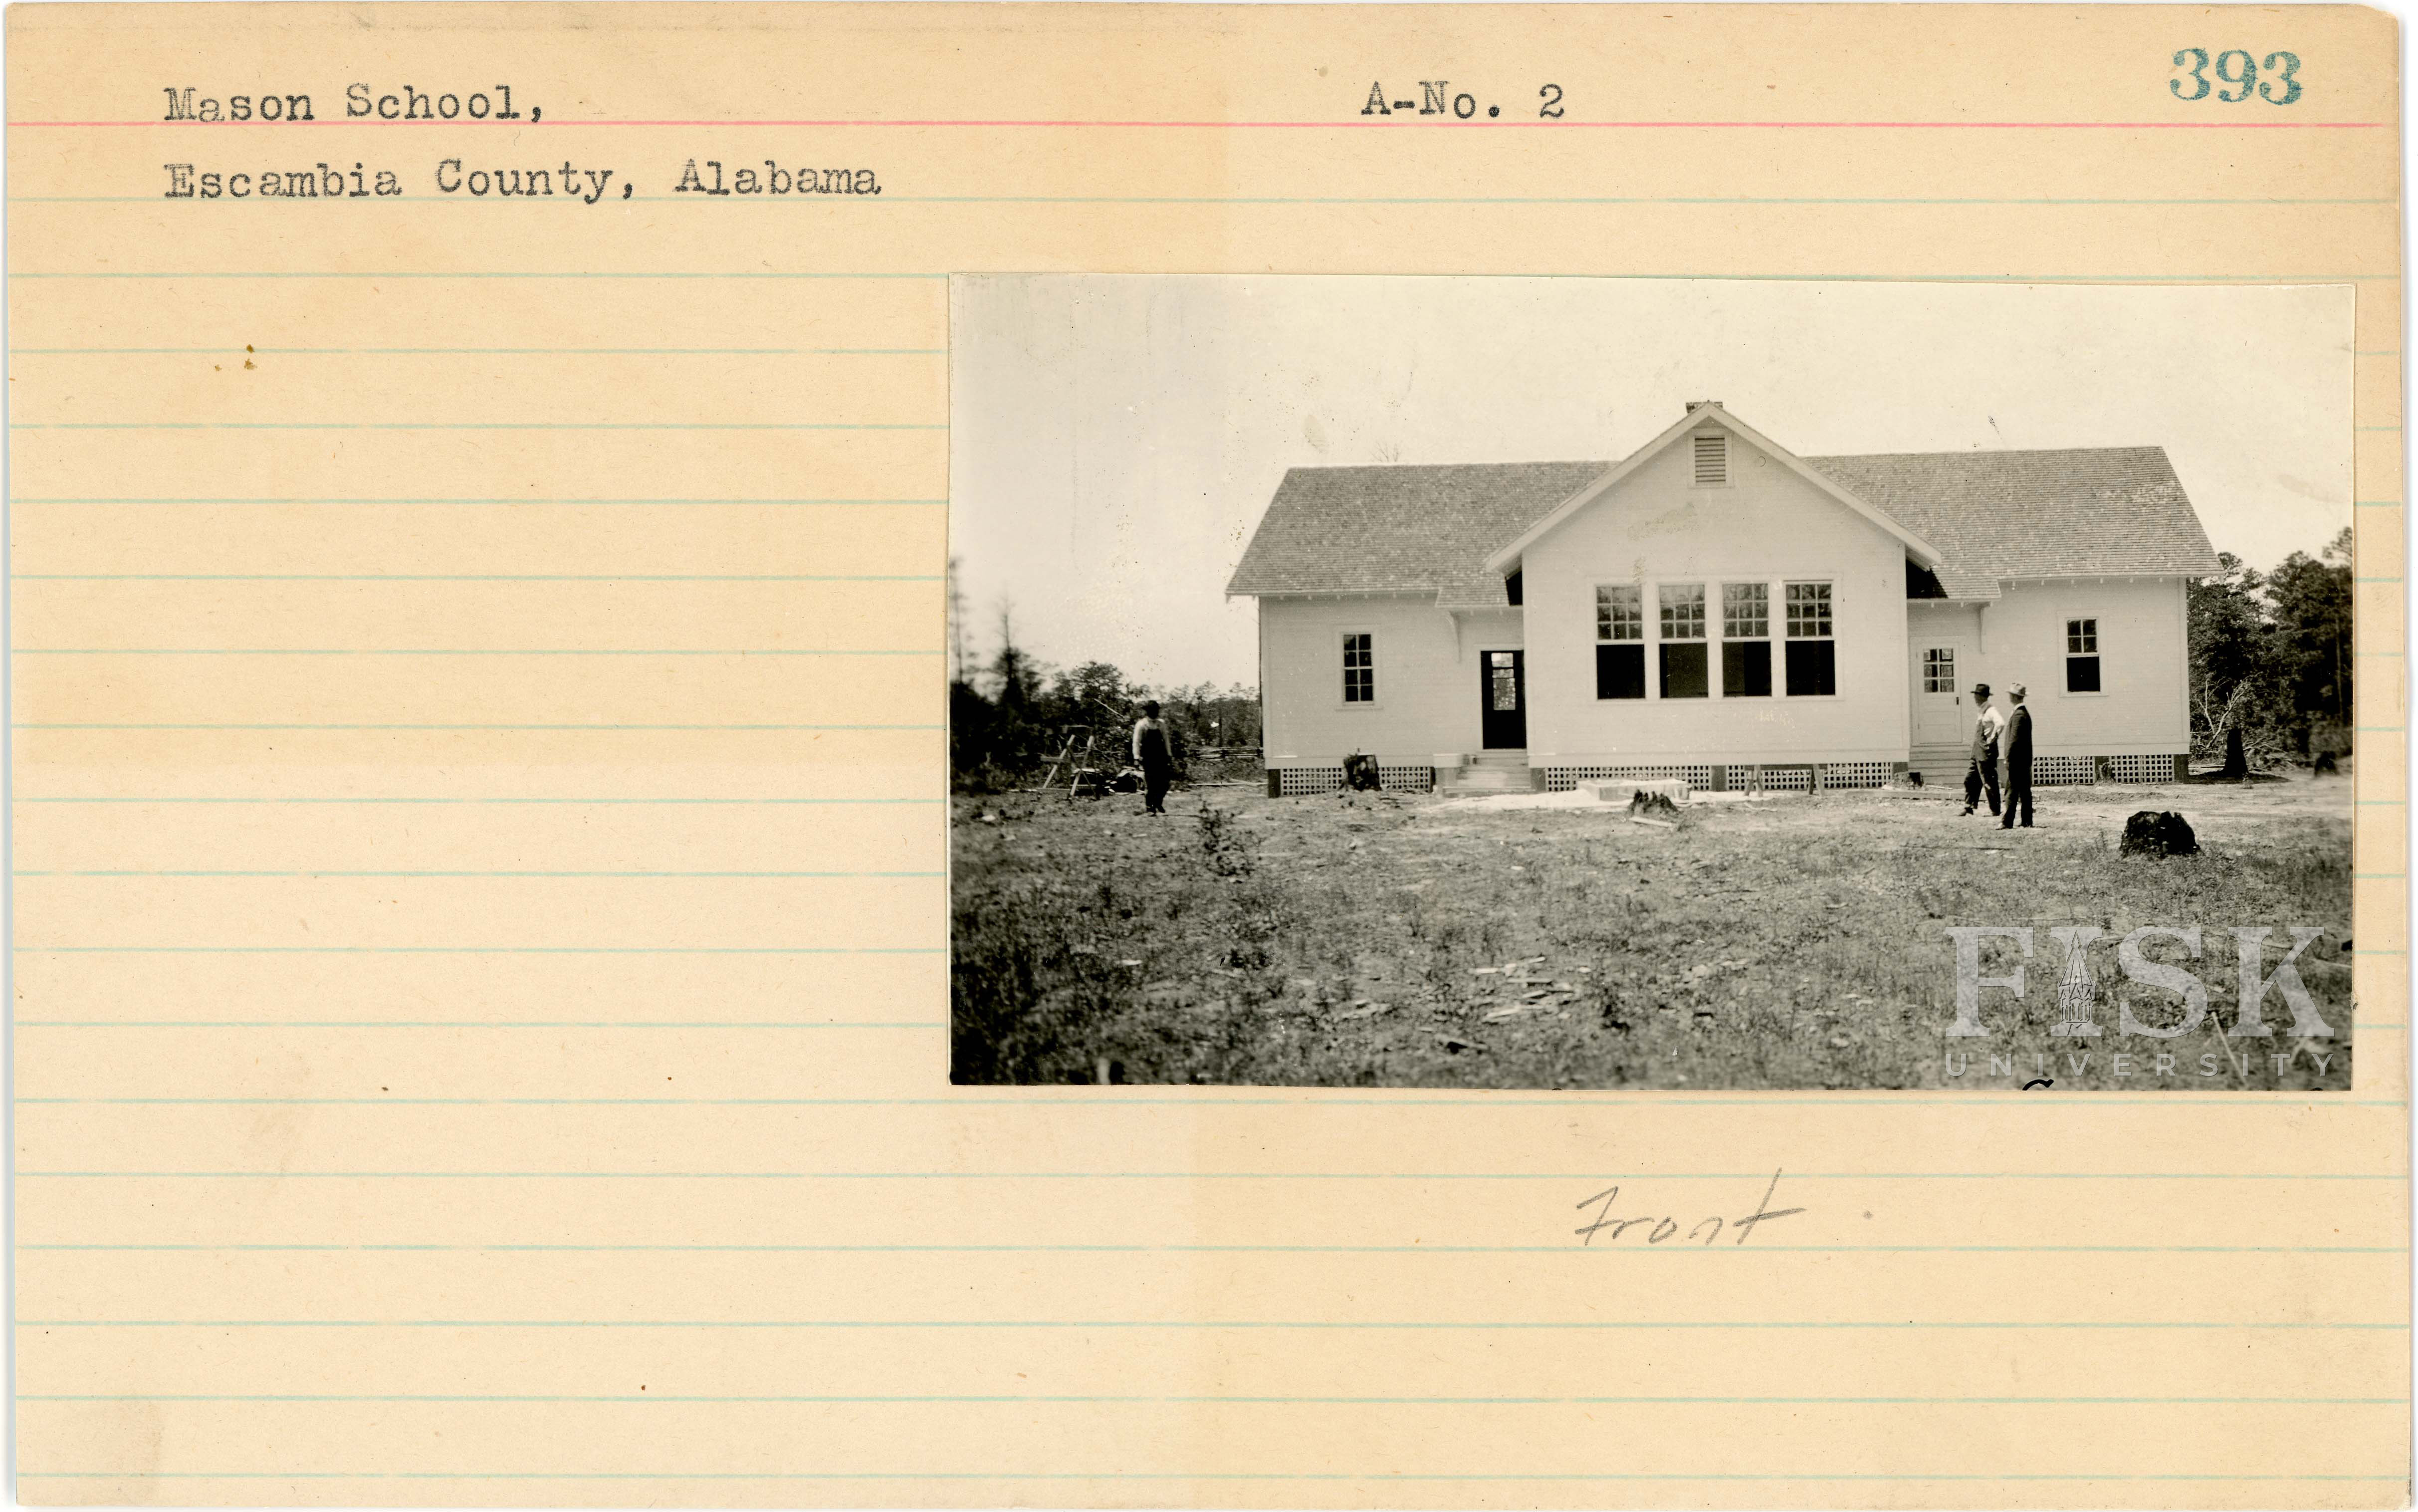 Mason School, A-No. 2 393
Escambia County, Alabama
FISK
UNIVERSITY
Front